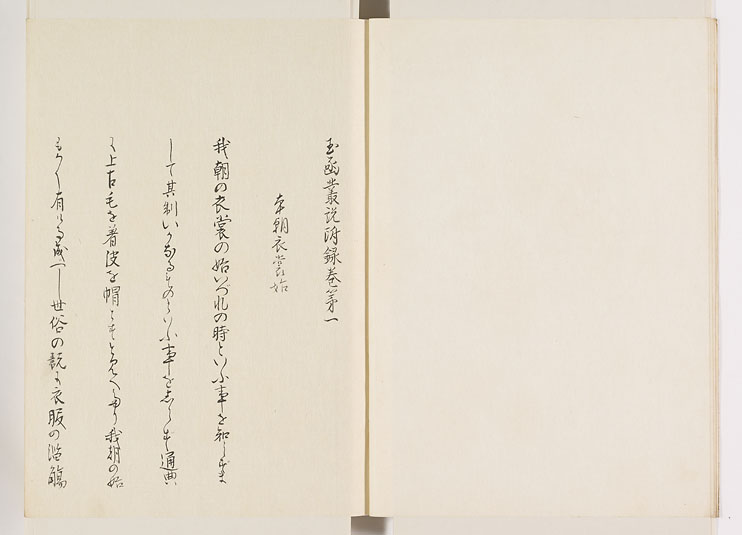 玉函叢説附録巻第一
本朝衣裳始
我朝の衣裳の始いづれの時といふ事を知らずま
して其制いかなるものといふ事をしらず通典
に上古毛を着皮を帽 我朝の始
もかく有ける成べし世俗の説に衣服の濫觴